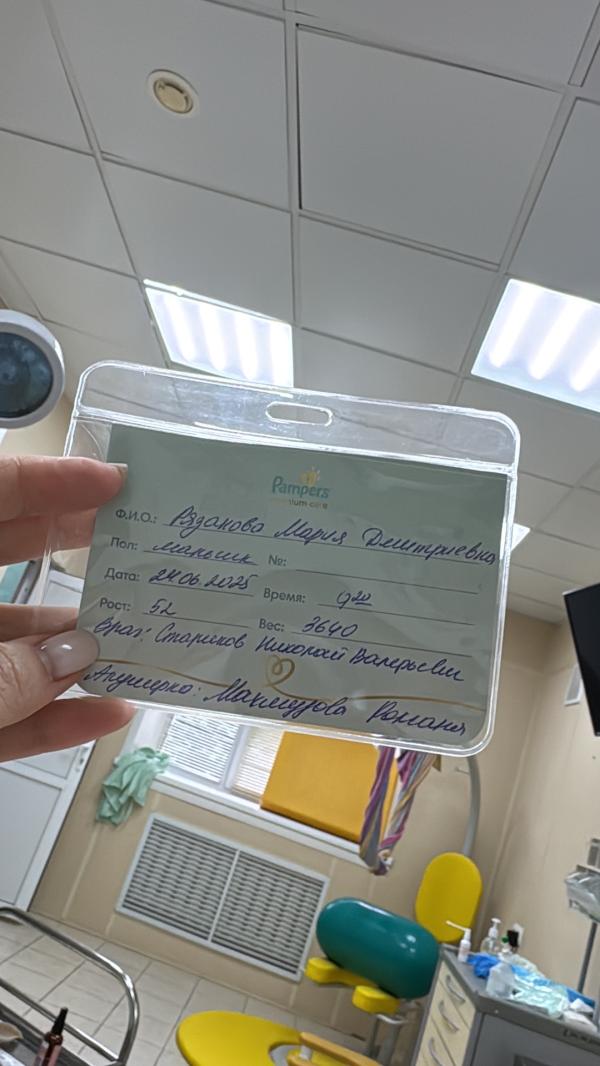 Pampers
premium care
Ф.И.О.: Рязанова Мария Дмитриевна
Пол: мальчик №:
Дата: 24.06.2025 Время: 9 20
Рост: 52 Вес: 3640
Врач: Стариков Николай Валерьевич
Акушерка: Махмудова Романия